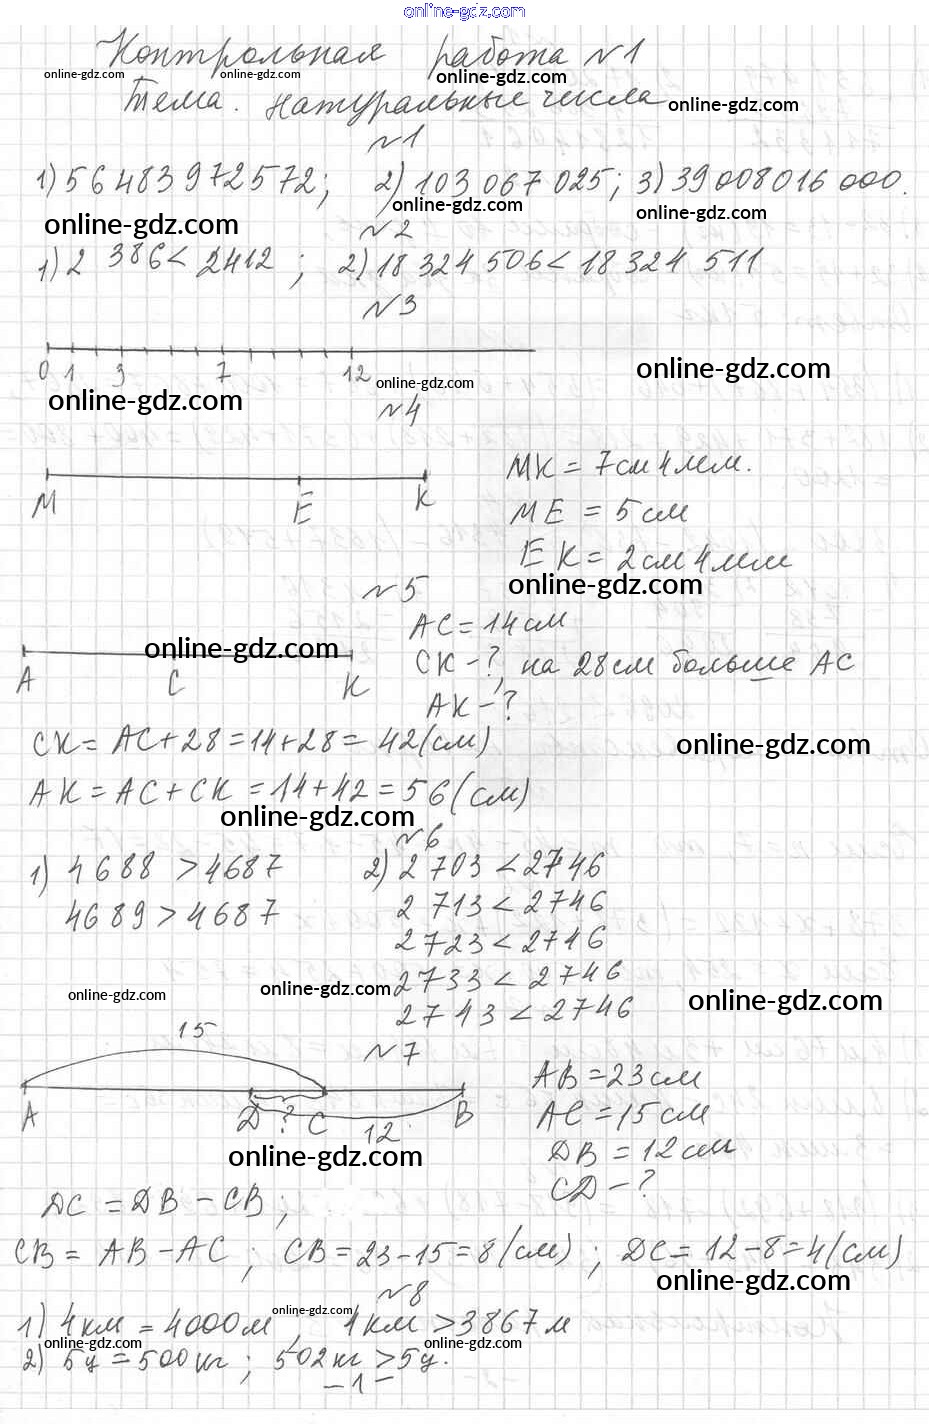 online-gdz.com
Контрольная работа №1
online-gdz.com online-gdz.com online-gdz.com
Тема. Натуральные числа online-gdz.com
№1
1) 56 483 972 572; 2) 103 067 025; 3) 39 008 016 000.
online-gdz.com online-gdz.com online-gdz.com
№2
1) 2 386 < 2412 ; 2) 18 324 506 < 18 324 511
№3
0 1 3 7 12 online-gdz.com online-gdz.com
online-gdz.com
№4
MK = 7см 4мм.
M E K
ME = 5см
EK = 2см 4мм
online-gdz.com
№5
AC = 14см
online-gdz.com
A C K
CK - ?, на 28см больше AC
AK - ?
CK = AC + 28 = 14 + 28 = 42 (см)
online-gdz.com
AK = AC + CK = 14 + 42 = 56 (см)
online-gdz.com
№6
1) 4688 > 4687 2) 2 703 < 2746
4689 > 4687 2 713 < 2746
2723 < 2746
2733 < 2746
2743 < 2746
online-gdz.com online-gdz.com online-gdz.com
15
№7
A D ? C 12 B
AB = 23см
AC = 15см
DB = 12см
CD - ?
online-gdz.com
DC = DB - CB;
CB = AB - AC ; CB = 23 - 15 = 8 (см) ; DC = 12 - 8 = 4 (см)
online-gdz.com
№8
online-gdz.com
1) 4км = 4000м , 4км > 3867м
online-gdz.com online-gdz.com
2) 5ц = 500кг ; 502кг > 5ц.
- 1 -